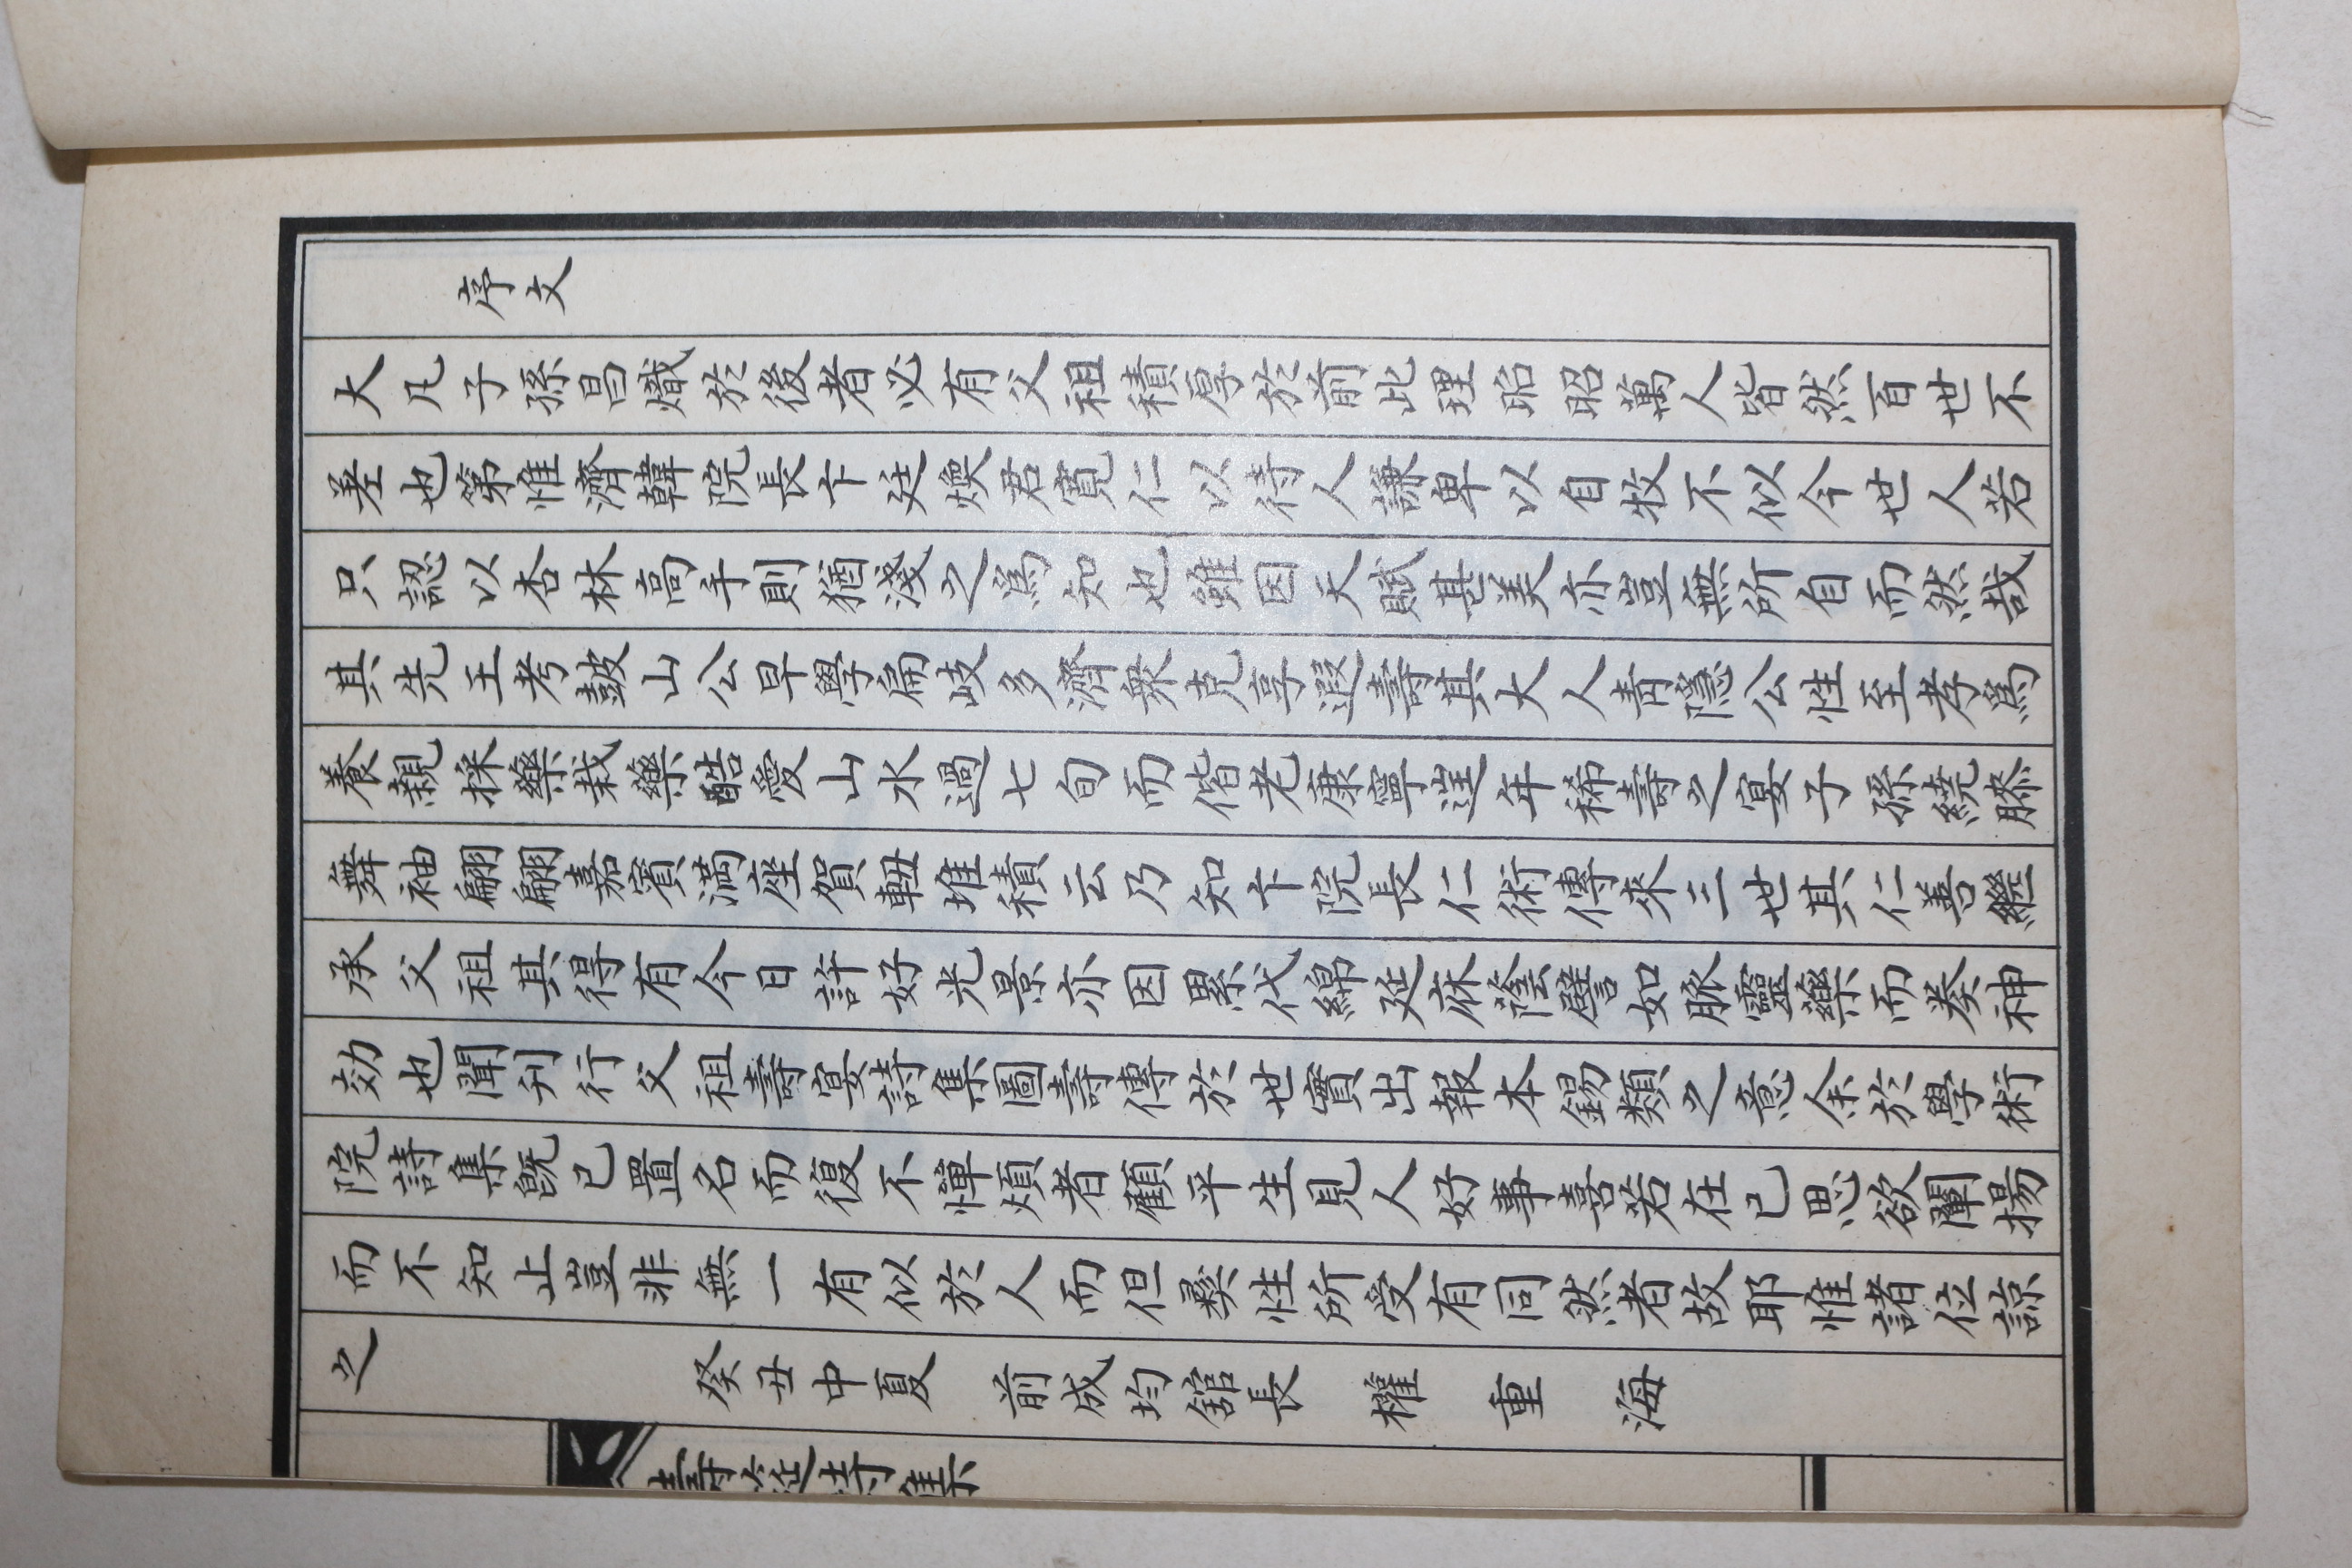 序文
大凡子孫昌熾於後者必有父祖積厚於前此理昭昭萬人皆然百世不
差也第惟濟韓院長卞廷煥君寬仁以待人謙卑以自牧不似今世人若
只認以杏林高手則猶淺之爲知也雖因天賦甚美亦豈無所自而然哉
其先王考皷山公早學扁岐多濟衆克享遐壽其大人靑隱公性至孝爲
養親採藥栽藥酷愛山水過七旬而偕老康寧逞年稀壽之宴子孫繞膝
舞袖翩翩嘉賓滿座賀軸堆積云乃知卞院長仁術傳來三世其仁善繼
承父祖其得有今日許好光景亦因累代綿延庥蔭譬如脈靈藥而奏神
効也聞刋行父祖壽宴詩集圖壽傳於世實出報本錫類之意余於學術
院詩集旣已置名而復不憚煩者顧平生見人好事喜若在已思欲闡揚
而不知止豈非無一有似於人而但彜性所受有同然者故耶惟諸位諒
之
癸丑中夏 前成均舘長 權重海
壽筵詩集